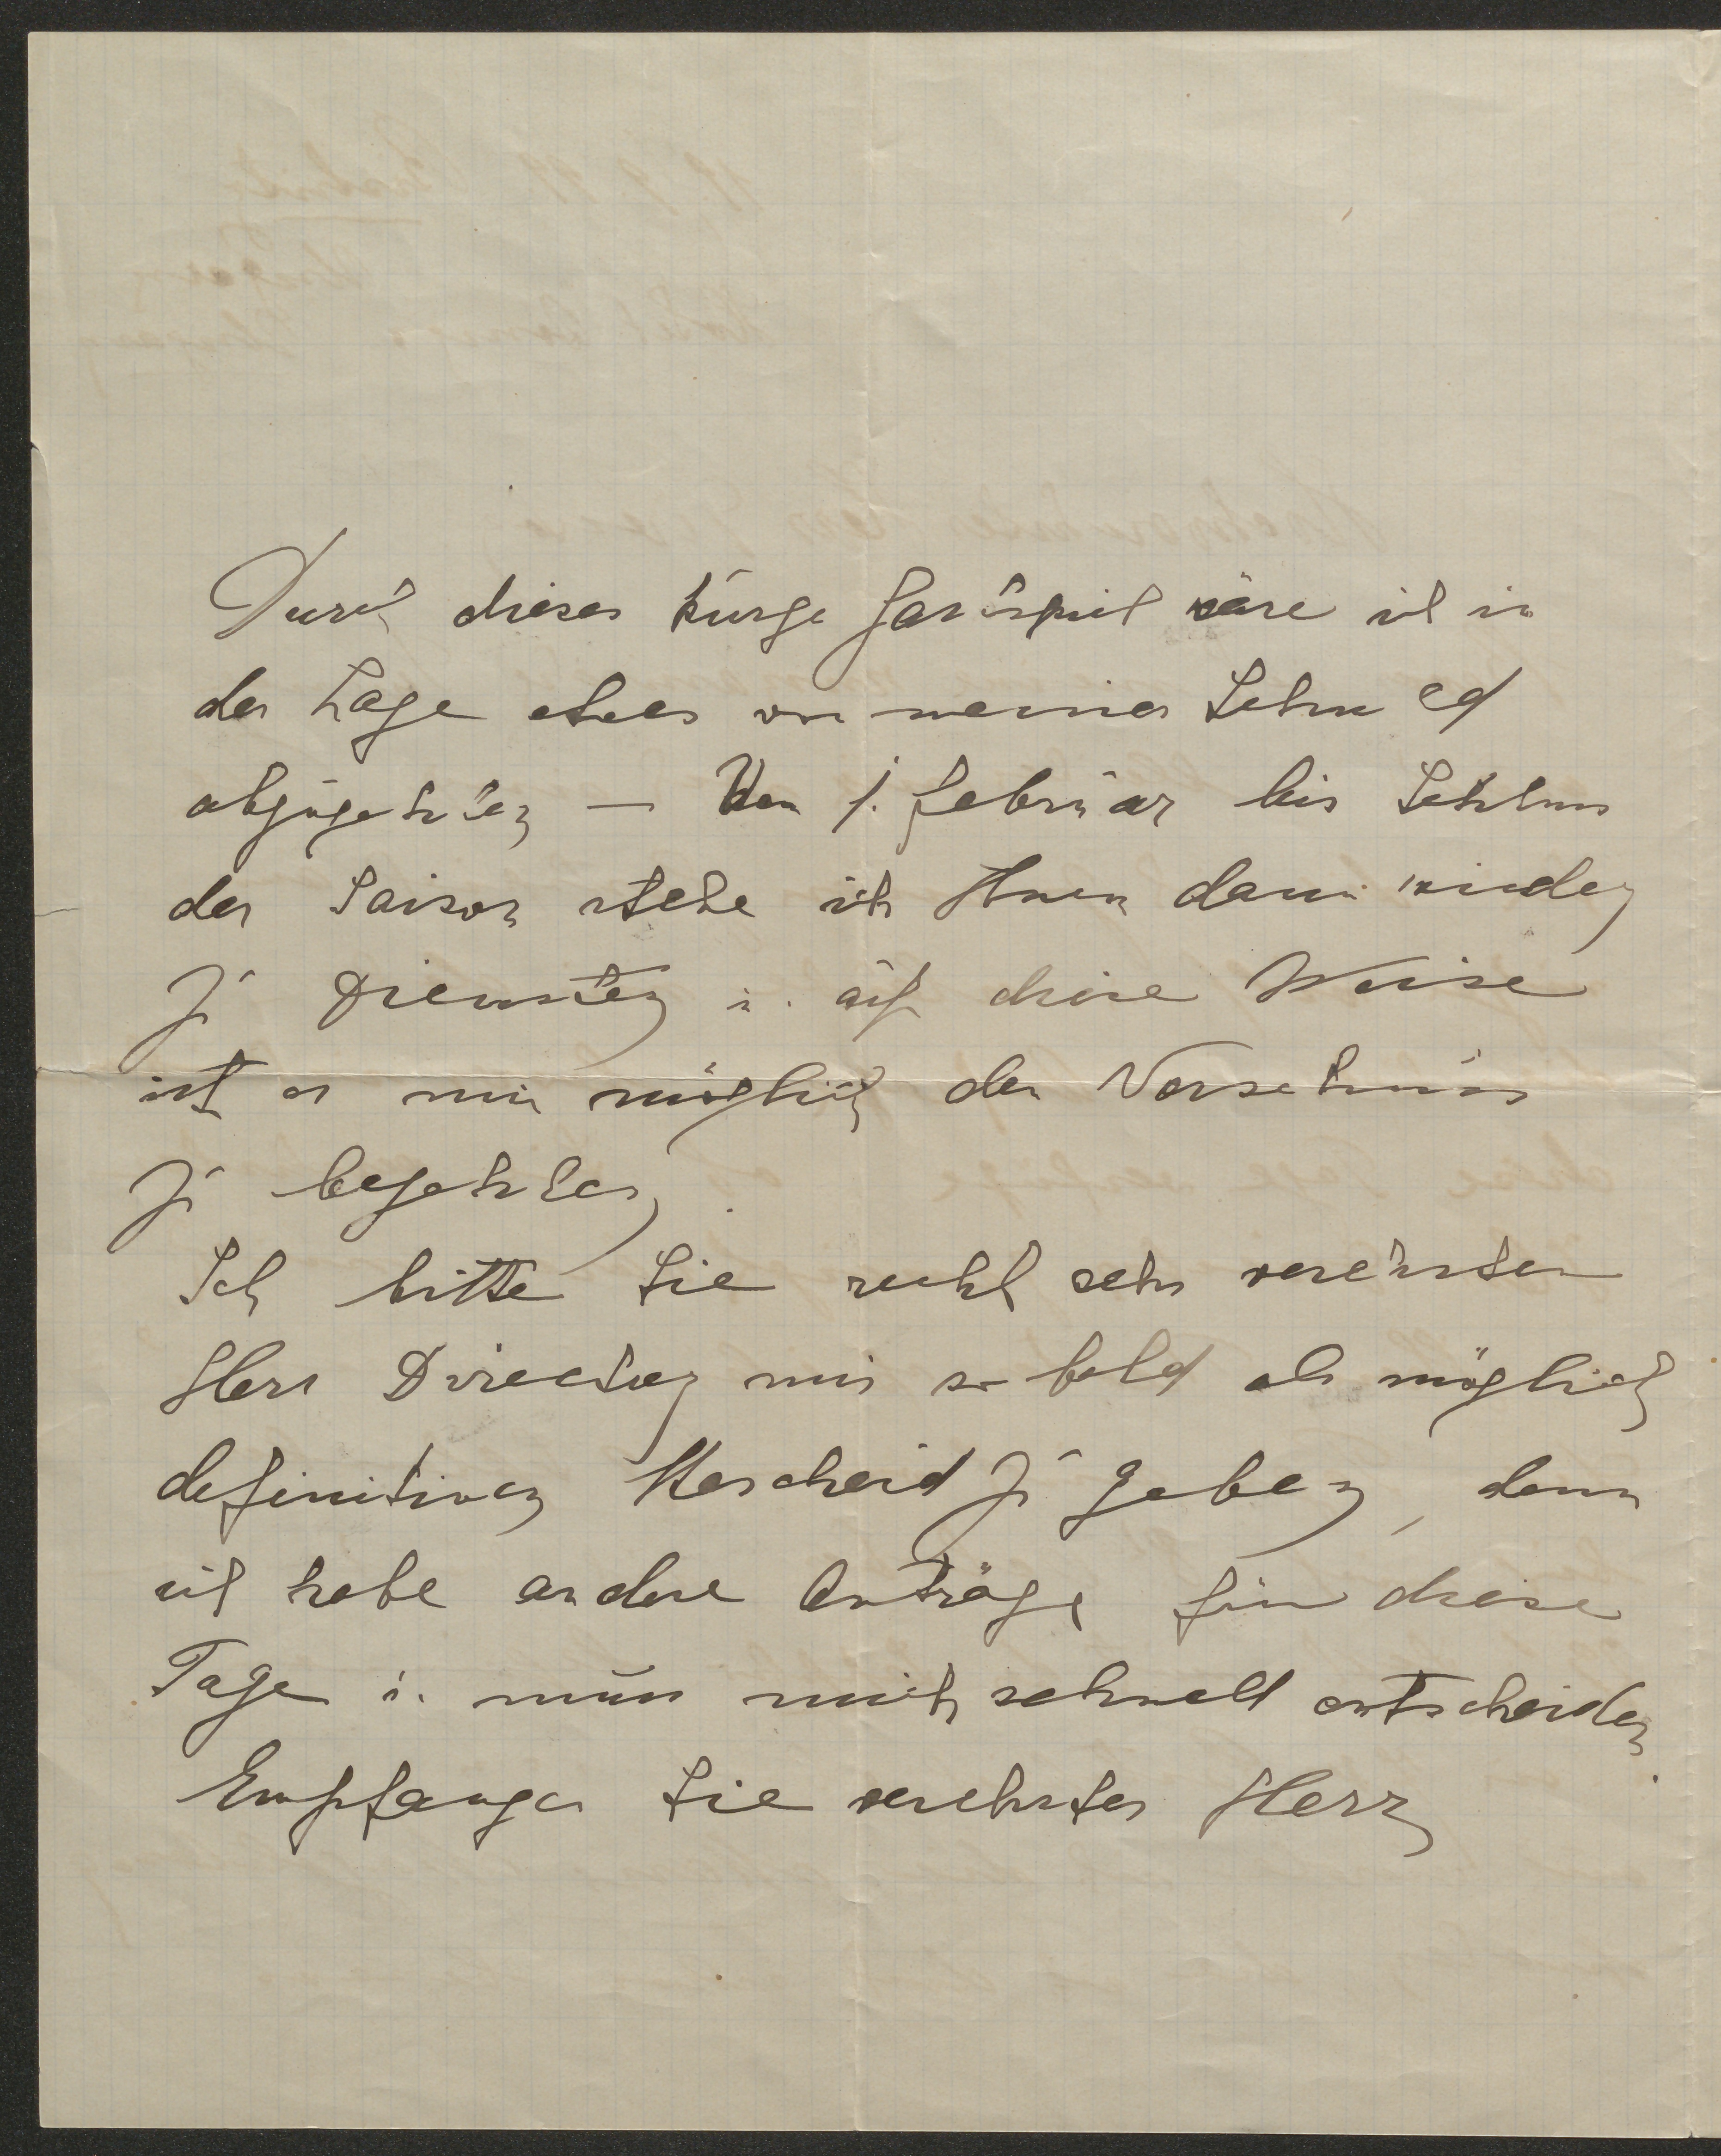 Durch dieses kurze Gastspiel wäre ich in
der Lage etwas von meiner Schuld
abzuzahlen — Von 1. Februar bis Schluss
der Saison stehe ich Ihnen dann wieder
zu Diensten u. auf diese Weise
ist es mir möglich den Vorschuss
zu bezahlen.
Ich bitte Sie recht sehr verehrter
Herr Director mir so bald als möglich
definitiven Bescheid zu geben, denn
ich habe andere Anträge für diese
Tage u. muss mich schnell entscheiden.
Empfangen Sie verehrter Herr